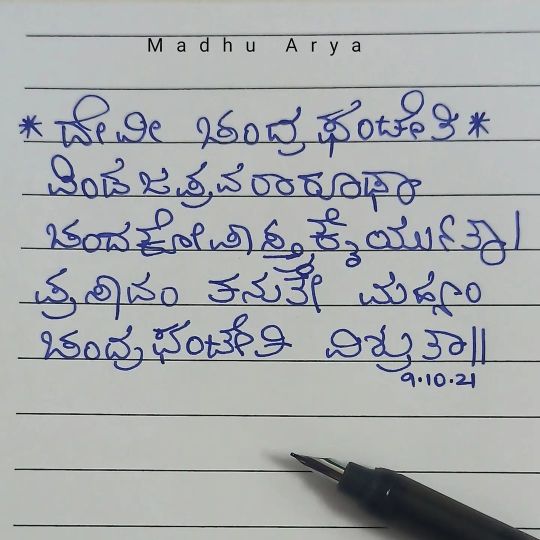 Madhu Arya
* ದೇವೀ ಚಂದ್ರಘಂಟೇತಿ *
ಪಿಂಡಜಪ್ರವರಾರೂಢಾ
ಚಂದಕೋಪಾಸ್ತ್ರಕೈರ್ಯುತಾ।
ಪ್ರಸಾದಂ ತನುತೇ ಮಹ್ಯಂ
ಚಂದ್ರಘಂಟೇತಿ ವಿಶ್ರುತಾ॥
9.10.21